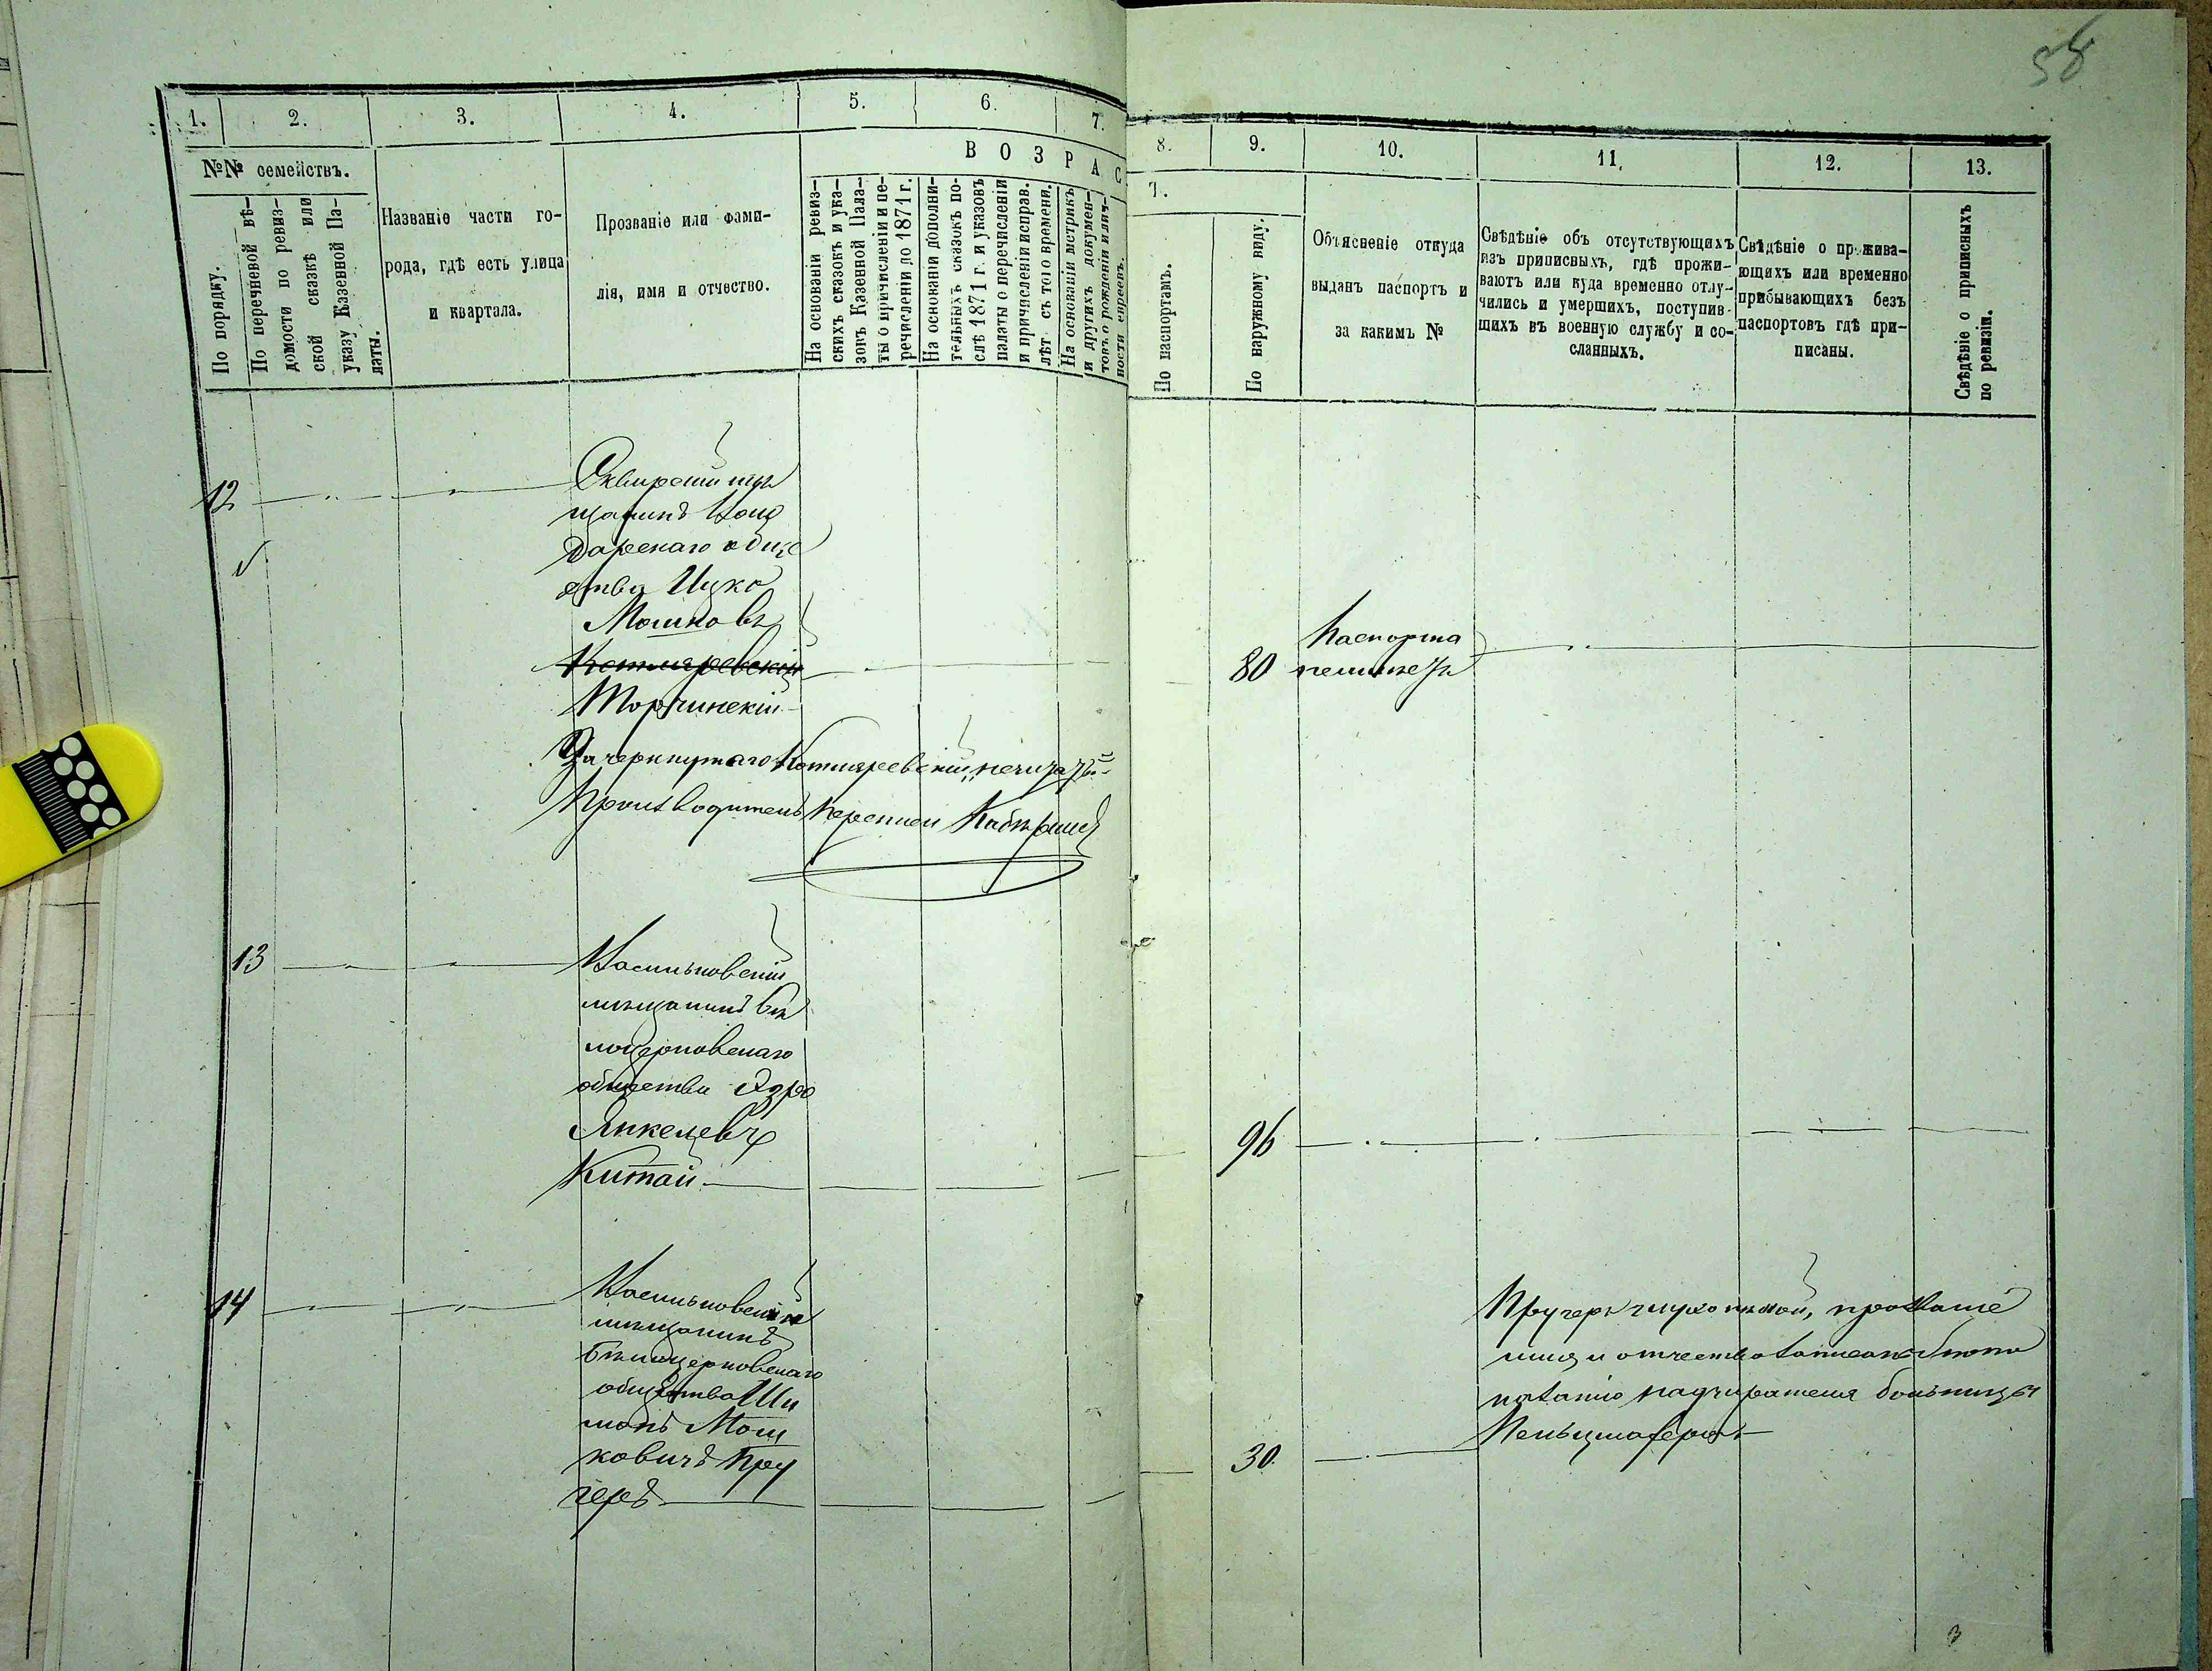 58
1. 2. 3. 4. 5. 6. 7. 8. 9. 10. 11. 12. 13.
№№ семействъ.
По порядку.
По перечневой вѣ-
домости по ревиз-
ской сказкѣ или
указу Казенной Па-
латы.
Названіе части го-
рода, гдѣ есть улица
и квартала.
Прозваніе или фами-
лія, имя и отчество.
ВОЗРАС
Т.
На основаніи ревиз-
скихъ сказокъ и ука-
зовъ Казенной Пала-
ты о причисленіи и пе-
речисленіи до 1871 г.
На основаніи дополни-
тельныхъ сказокъ по-
слѣ 1871 г. и указовъ
палаты о перечисленіи
и причисленіи исправ.
лѣт съ того времени.
На основаніи метрикъ
и другихъ докумен-
товъ о рожденіи и лич-
ности евреевъ.
По паспортамъ.
По наружному виду.
Объясненіе откуда
выданъ паспортъ и
за какимъ №
Свѣдѣніе объ отсутствующихъ
изъ приписныхъ, гдѣ прожи-
ваютъ или куда временно отлу-
чились и умершихъ, поступив-
шихъ въ военную службу и со-
сланныхъ.
Свѣдѣніе о прожива-
ющихъ или временно
прибывающихъ безъ
паспортовъ гдѣ при-
писаны.
Свѣдѣніе о приписныхъ
по ревизіи.
12
Сквирскій мѣ
щанинъ
дарскаго обще
ства Ицко
Мошковъ
Котляревскій
Торчинскій
80
Паспорта
неимѣетъ
Зачеркнутаго „Котляревскій„ нечитать
Производитель переписи
13
Васильковскій
мѣщанинъ Бѣ
лоцерковскаго
общества Азро
Янкелевъ
Китай
96
14
Васильковскій
мѣщанинъ
Бѣлоцерковскаго
общества Ши
монъ Мош
ковичъ Кру
геръ
30
Кругеръ глухонѣмой, прозваніе
имя и отчество записано по по
казанію надзирателя больницы